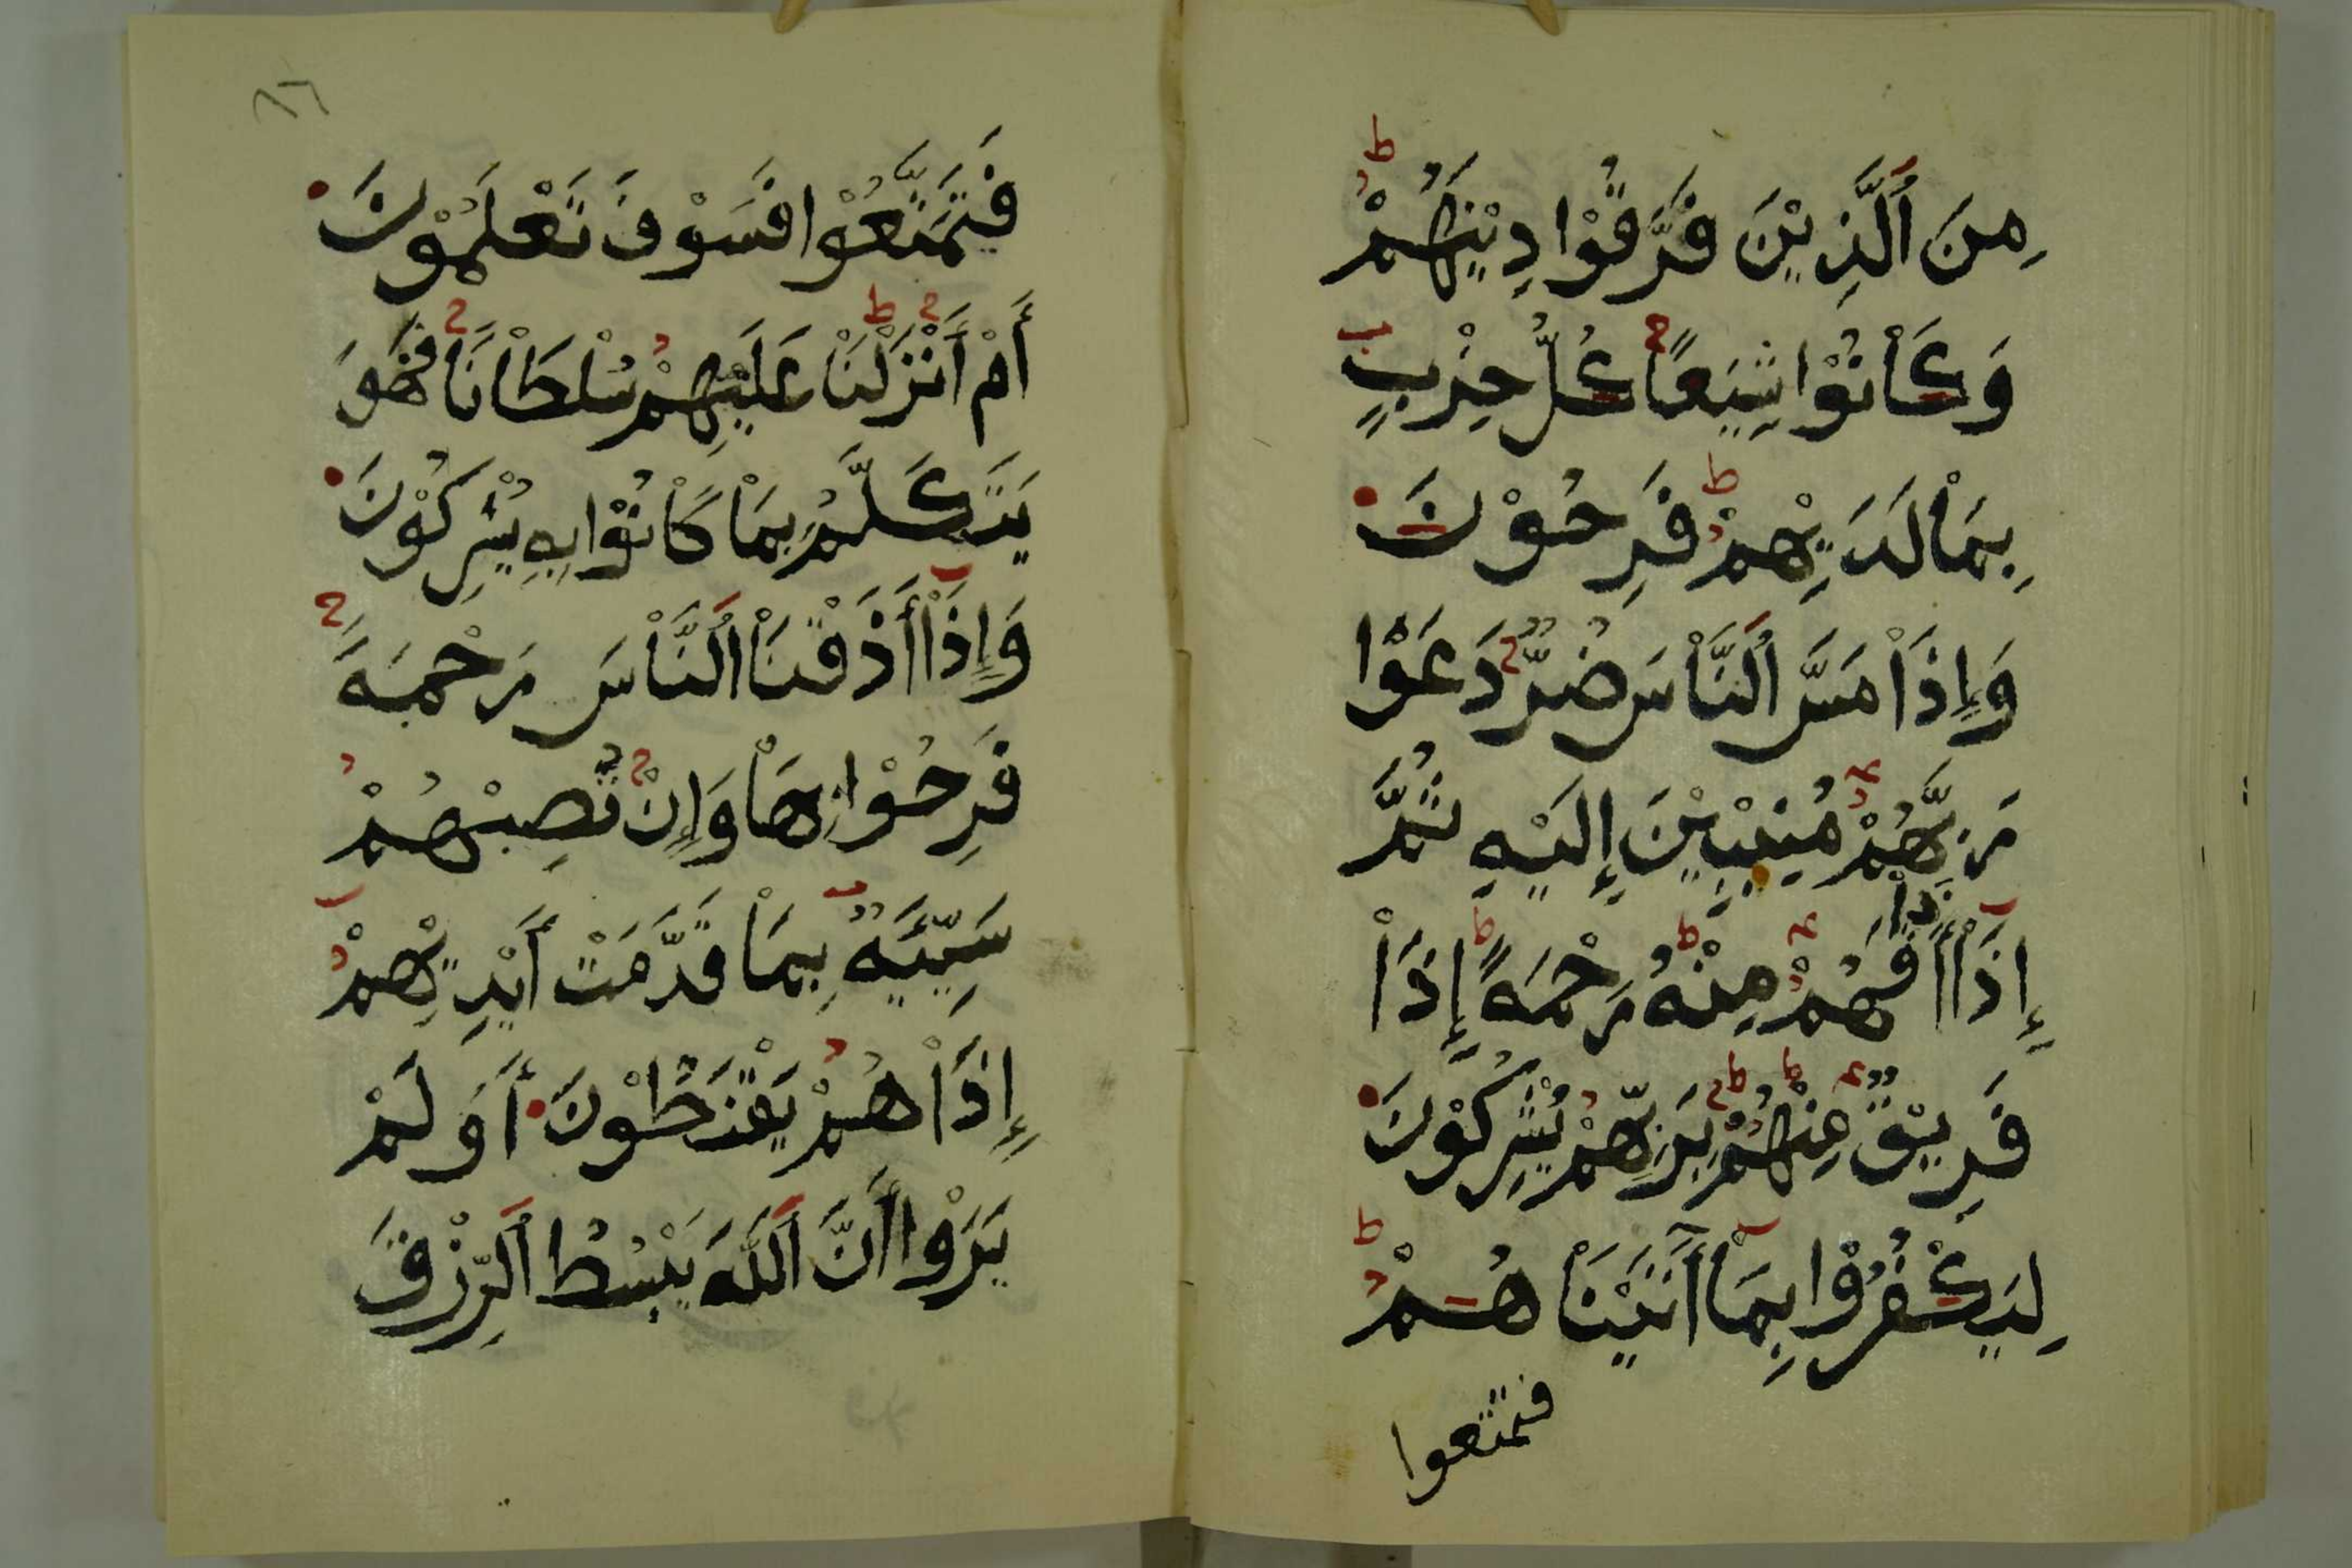 مِنَ ٱلَّذِيْنَ فَرَّقُوْا دِيْنَهُمْ
وَكَاْنُوْا شِيَعًا كُلُّ حِزْبٍ
بِمَاْ لَدَيْهِمْ فَرِحُوْنَ
وَإِذَاْ مَسَّ اُلنَّاْسَ ضُرٌّ دَعَوْا
رَبَّهُمْ مُنِيْبِيْنَ إِلَيْهِ ثُمَّ
إِذَاْ أَذَاْقَهُمْ مِنْهُ رَحْمَةً إِذَاْ
فَرِيْقٌ مِنْهُمْ بِرَبِّهِمْ يُشْرِكُوْنَ
لِيَكْفُرُوْا بِمَاْ آتَيْنَاْهُمْ
فتمتعوا
٨٦
فَتَمَتَّعُوْا فَسَوْفَ تَعْلَمُوْنَ
أَمْ أَنْزَلْنَاْ عَلَيْهِمْ سُلْطَاْنًا فَهُوَ
يَتَكَلَّمُ بِمَاْ كَاْنُوْا بِهِ يُشْرِكُوْنَ
وَإِذَاْ أَذَقْنَاْ اُلنَّاْسَ رَحْمَةً
فَرِحُوْا بِهَاْ وَإِنْ تُصِبْهُمْ
سَيِّئَةٌ بِمَاْ قَدَّمَتْ أَيْدِيْهِمْ
إِذَاْ هُمْ يَقْنَطُوْنَ أَوَلَمْ
يَرَوْا أَنَّ اَللَّهَ يَبْسُطُ اُلرِّزْقَ